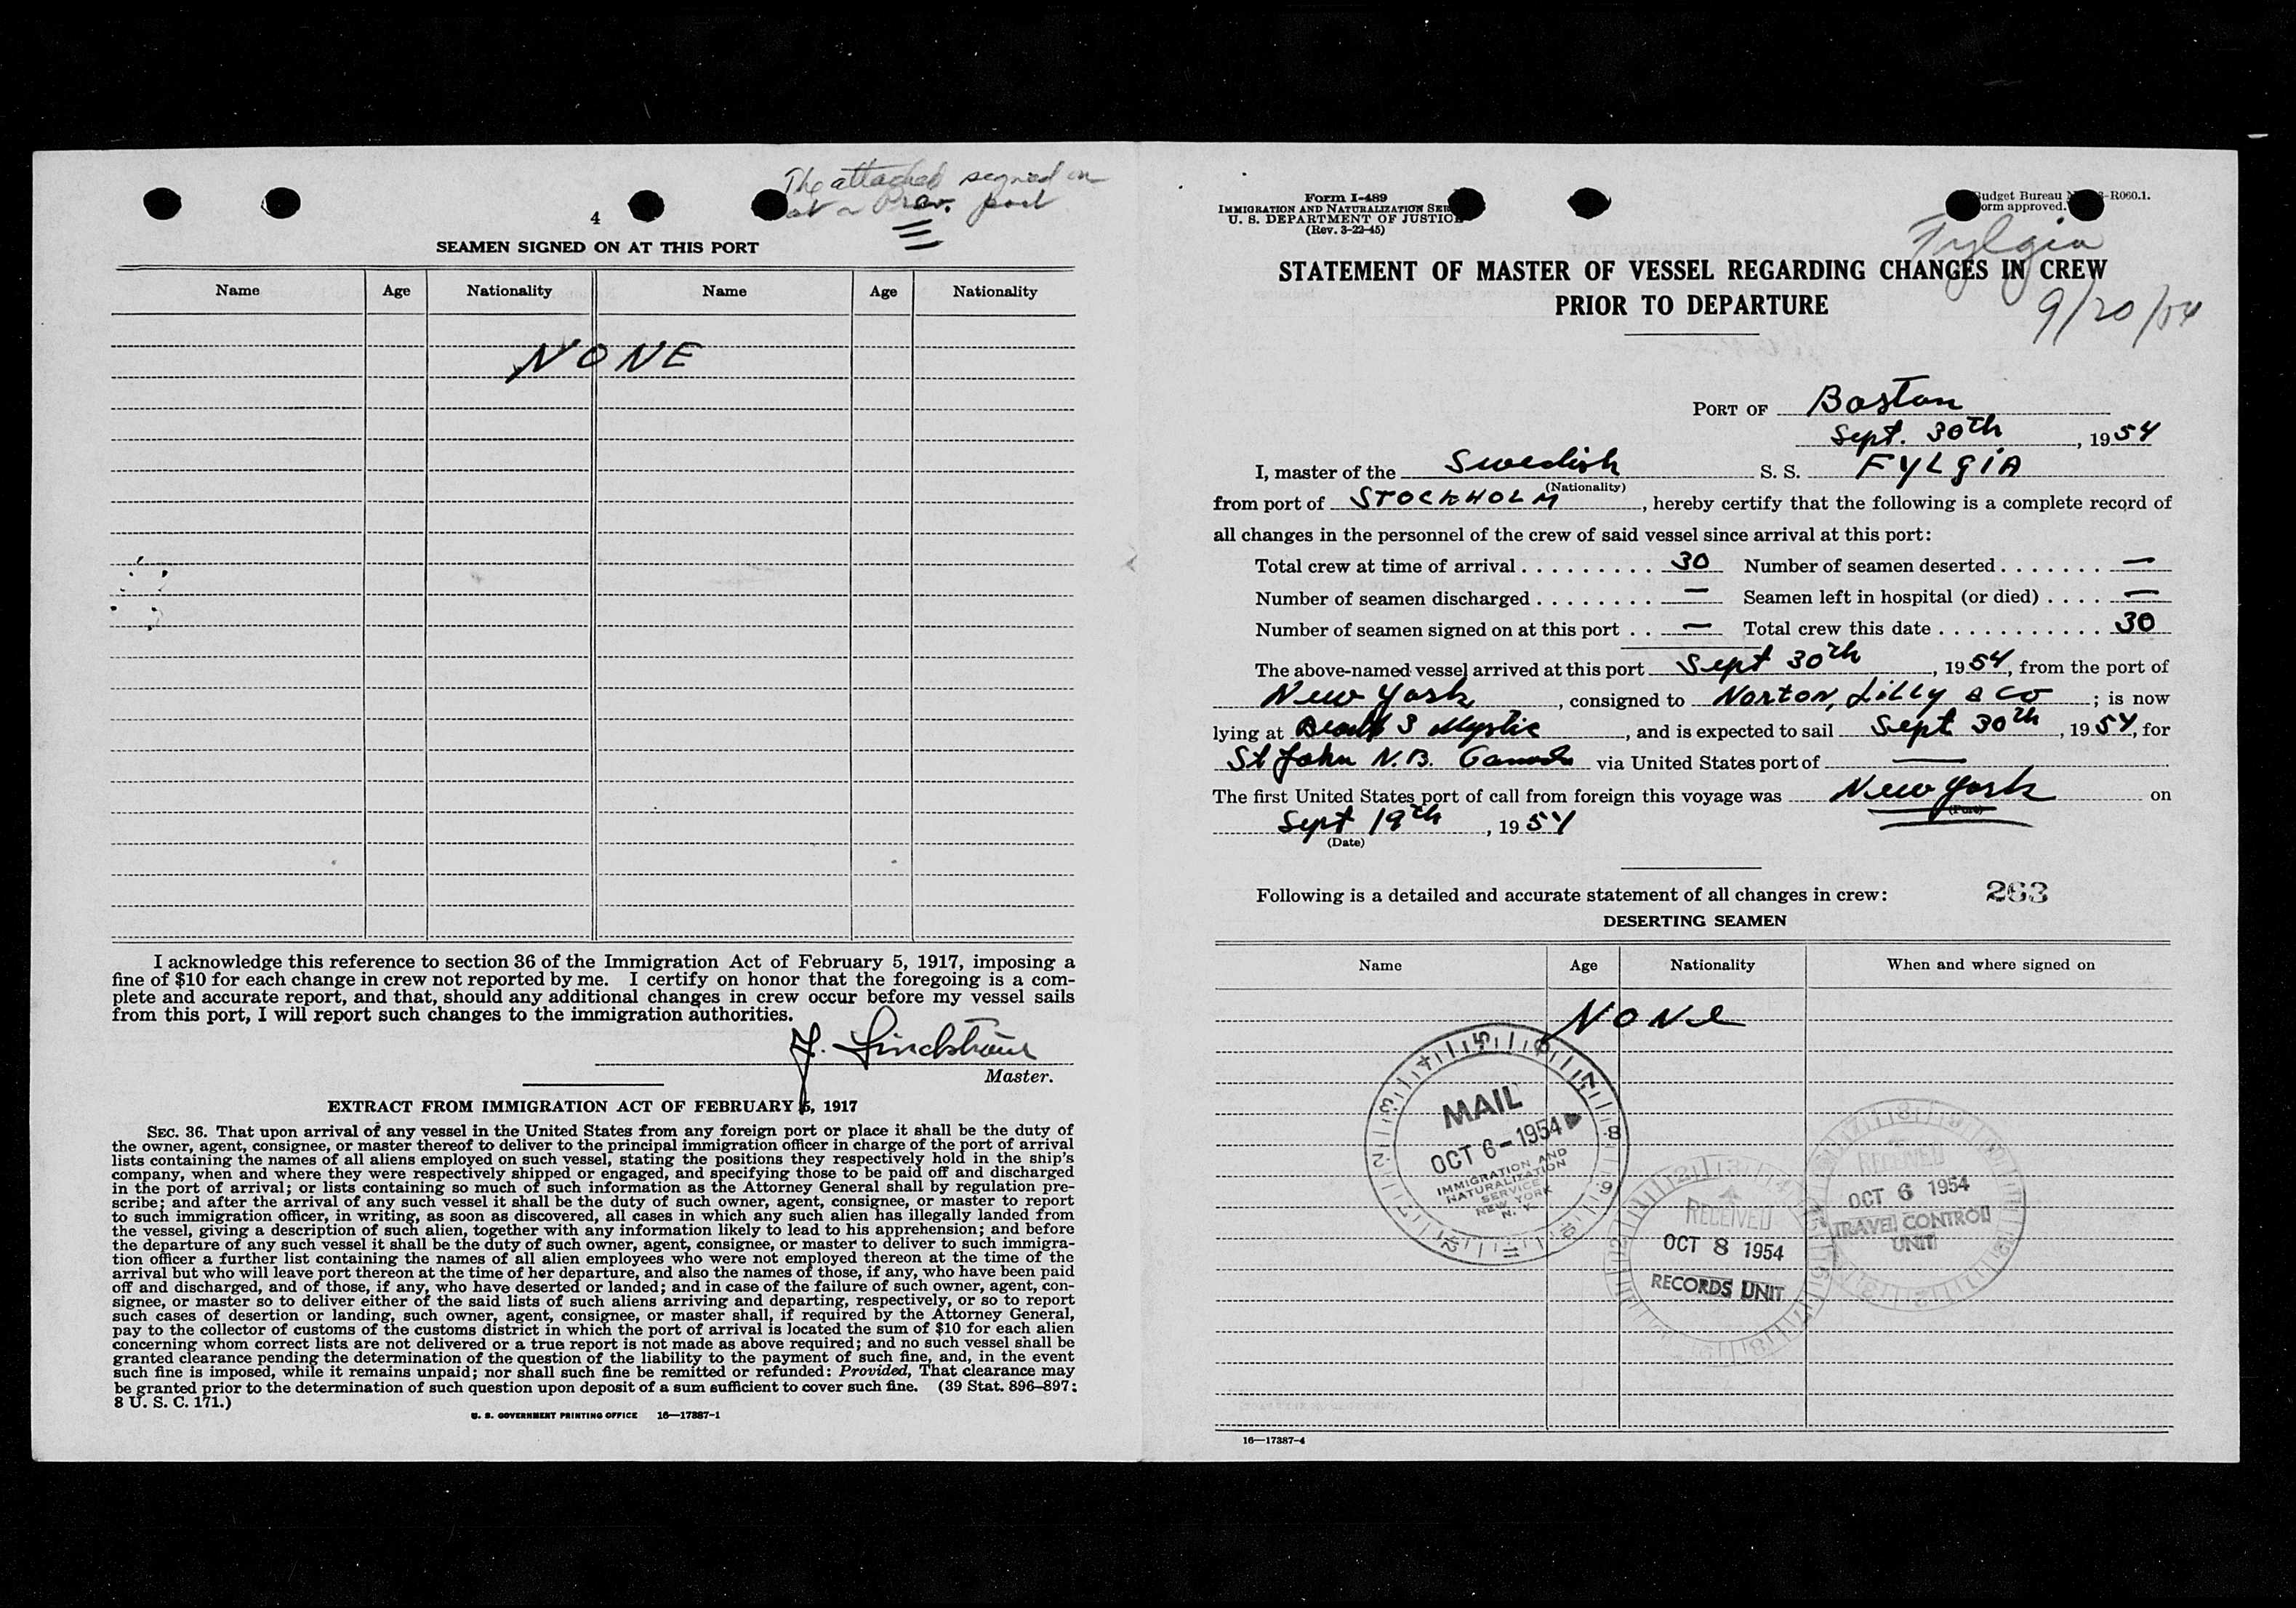 The attached signed on
at a Prev. port
4
SEAMEN SIGNED ON AT THIS PORT
Name Age Nationality Name Age Nationality
NONE
I acknowledge this reference to section 36 of the Immigration Act of February 5, 1917, imposing a
fine of $10 for each change in crew not reported by me. I certify on honor that the foregoing is a com-
plete and accurate report, and that, should any additional changes in crew occur before my vessel sails
from this port, I will report such changes to the immigration authorities.
Master.
EXTRACT FROM IMMIGRATION ACT OF FEBRUARY 5, 1917
SEC. 36. That upon arrival of any vessel in the United States from any foreign port or place it shall be the duty of
the owner, agent, consignee, or master thereof to deliver to the principal immigration officer in charge of the port of arrival
lists containing the names of all aliens employed on such vessel, stating the positions they respectively hold in the ship's
company, when and where they were respectively shipped or engaged, and specifying those to be paid off and discharged
in the port of arrival; or lists containing so much of such information as the Attorney General shall by regulation pre-
scribe; and after the arrival of any such vessel it shall be the duty of such owner, agent, consignee, or master to report
to such immigration officer, in writing, as soon as discovered, all cases in which any such alien has illegally landed from
the vessel, giving a description of such alien, together with any information likely to lead to his apprehension; and before
the departure of any such vessel it shall be the duty of such owner, agent, consignee, or master to deliver to such immigra-
tion officer a further list containing the names of all alien employees who were not employed thereon at the time of the
arrival but who will leave port thereon at the time of her departure, and also the names of those, if any, who have been paid
off and discharged, and of those, if any, who have deserted or landed; and in case of the failure of such owner, agent, con-
signee, or master so to deliver either of the said lists of such aliens arriving and departing, respectively, or so to report
such cases of desertion or landing, such owner, agent, consignee, or master shall, if required by the Attorney General,
pay to the collector of customs of the customs district in which the port of arrival is located the sum of $10 for each alien
concerning whom correct lists are not delivered or a true report is not made as above required; and no such vessel shall be
granted clearance pending the determination of the question of the liability to the payment of such fine, and, in the event
such fine is imposed, while it remains unpaid; nor shall such fine be remitted or refunded: Provided, That clearance may
be granted prior to the determination of such question upon deposit of a sum sufficient to cover such fine. (39 Stat. 896–897;
8 U. S. C. 171.)
U. S. GOVERNMENT PRINTING OFFICE 16—17387-1
Form I-489
IMMIGRATION AND NATURALIZATION SER
U. S. DEPARTMENT OF JUSTICE
(Rev. 3-22-45)
udget Bureau -R060.1.
orm approved.
Fylgia
STATEMENT OF MASTER OF VESSEL REGARDING CHANGES IN CREW
PRIOR TO DEPARTURE
9/20/54
PORT OF Boston
Sept. 30th, 1954
I, master of the Swedish S. S. FYLGIA
(Nationality)
from port of STOCKHOLM, hereby certify that the following is a complete record of
all changes in the personnel of the crew of said vessel since arrival at this port:
Total crew at time of arrival . . . . . . . . . . 30 Number of seamen deserted . . . . . . . —
Number of seamen discharged . . . . . . . . — Seamen left in hospital (or died) . . . . —
Number of seamen signed on at this port . . — Total crew this date . . . . . . . . . . . . 30
The above-named vessel arrived at this port Sept 30th, 1954, from the port of
New York, consigned to Norton, Lilly & Co; is now
lying at 3 Mystic, and is expected to sail Sept 30th, 1954, for
St John N.B. Canada via United States port of —
The first United States port of call from foreign this voyage was New York on
(Port)
Sept 19th, 1954
(Date)
Following is a detailed and accurate statement of all changes in crew: 263
DESERTING SEAMEN
Name Age Nationality When and where signed on
None
MAIL
OCT 6-1954
IMMIGRATION AND
NATURALIZATION
SERVICE
NEW YORK
N. Y.
RECEIVED
OCT 6 1954
TRAVEL CONTROL
UNIT
RECEIVED
OCT 8 1954
RECORDS UNIT
16—17387-4